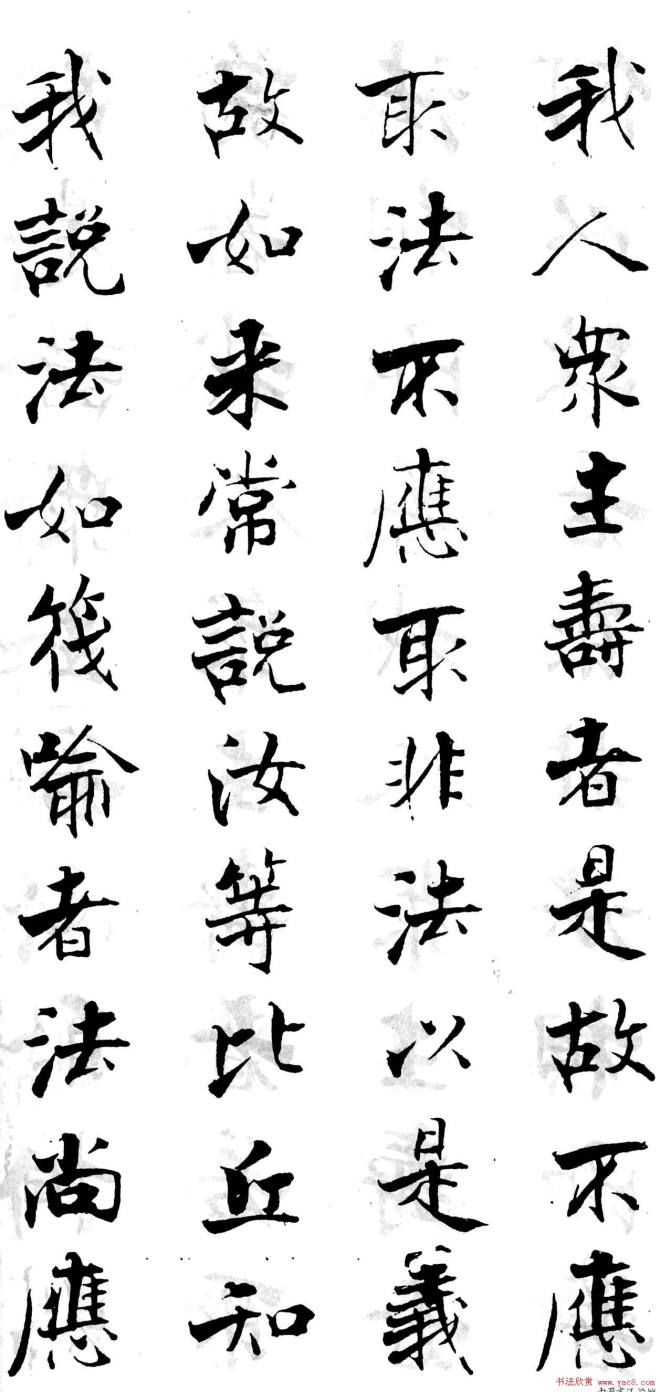 我人衆主壽者是故不應
取法不應取非法以是義
故如来常説汝等比丘知
我説法如筏喻者法尚應
书法欣赏 www.yac8.com